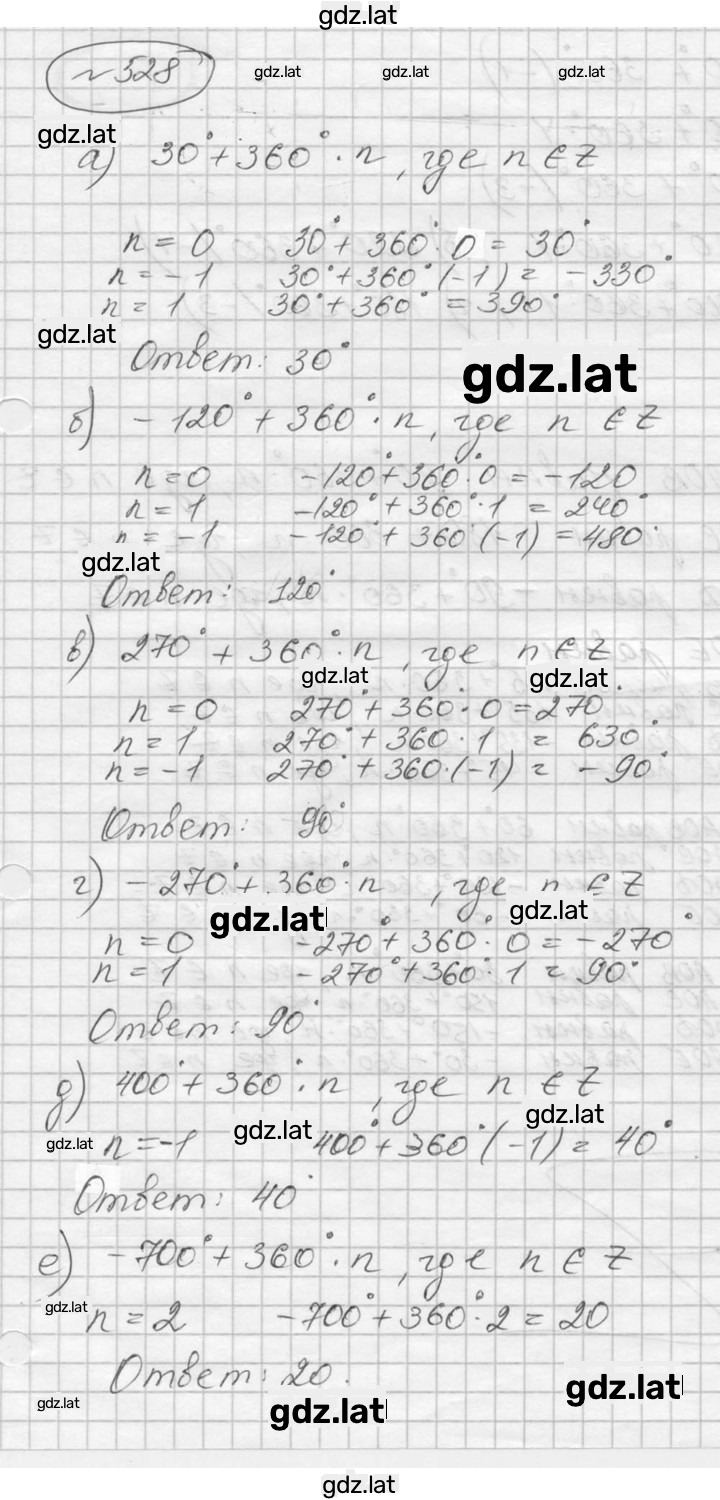 gdz.lat
№ 528
gdz.lat gdz.lat gdz.lat
gdz.lat
а) 30° + 360° · n, где n ∈ Z
n = 0 30° + 360° · 0 = 30°
n = -1 30° + 360° (-1) = -330°
n = 1 30° + 360° = 390°
gdz.lat
Ответ: 30°
gdz.lat
б) -120° + 360° · n, где n ∈ Z
n = 0 -120° + 360° · 0 = -120
n = 1 -120° + 360° · 1 = 240°
n = -1 -120° + 360° (-1) = 480°
gdz.lat
Ответ: 120°
в) 270° + 360° · n, где n ∈ Z
gdz.lat gdz.lat
n = 0 270° + 360° · 0 = 270°
n = 1 270° + 360 · 1 = 630°
n = -1 270° + 360 · (-1) = -90°
Ответ: 90°
г) -270° + 360° · n, где n ∈ Z
gdz.lat gdz.lat
n = 0 -270° + 360° · 0 = -270°
n = 1 -270° + 360° · 1 = 90°
Ответ: 90°
д) 400° + 360° · n, где n ∈ Z
gdz.lat gdz.lat gdz.lat
n = -1 400° + 360° (-1) = 40°
Ответ: 40°
е) -700° + 360° · n, где n ∈ Z
gdz.lat
n = 2 -700° + 360° · 2 = 20
Ответ: 20.
gdz.lat gdz.lat gdz.lat
gdz.lat